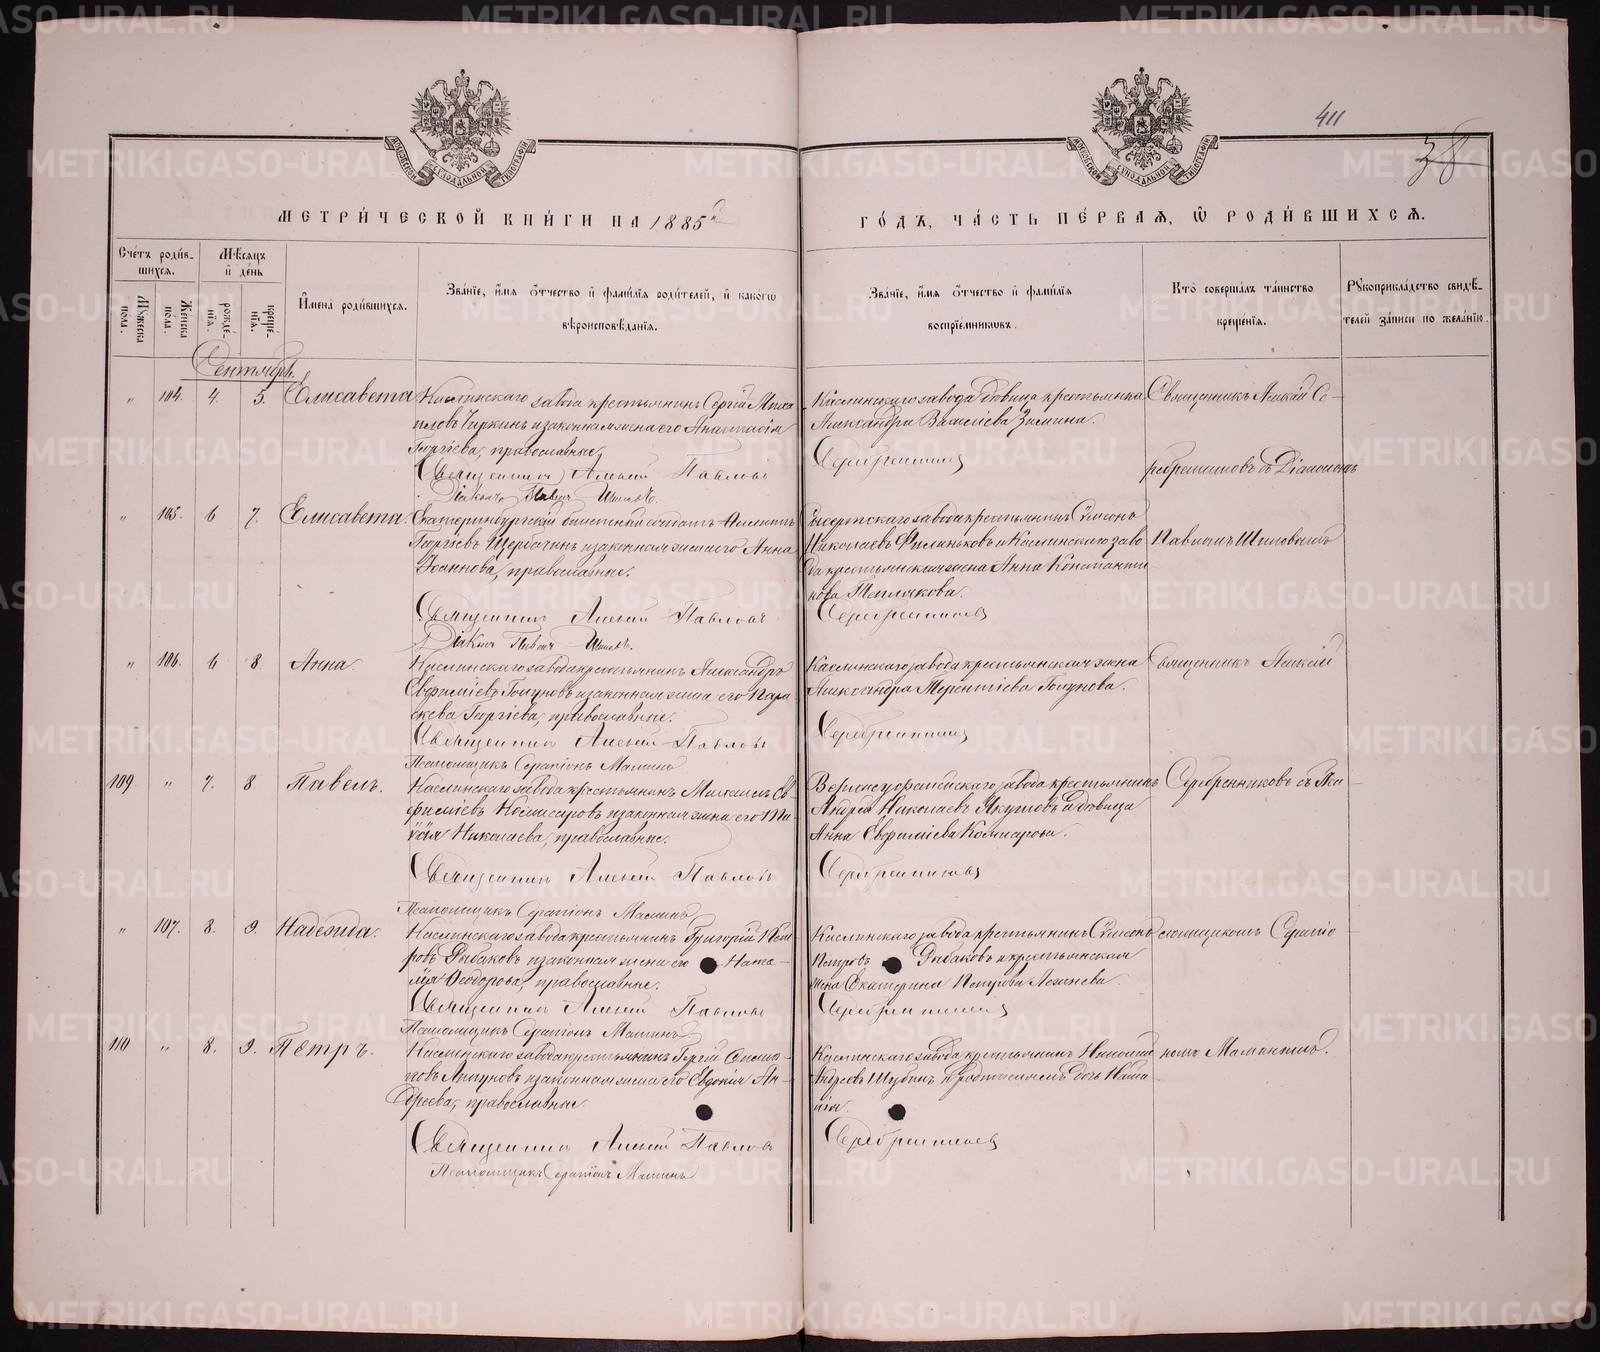 411
38
МЕТРИ́ЧЕСКОЙ КНИ́ГИ НА 1885й
ГО́ДЪ, ЧА́СТЬ ПЕ́РВАЯ, Ѡ РОДИ́ВШИХСЯ.
Сче́тъ роди́в-
шихся.
Мѣ́сяцъ
и де́нь
Мꙋ́жеска
по́ла.
Же́нска
по́ла.
рожде́-
нїя.
креще́-
нїя.
И́мена роди́вшихся.
Зва́нїе, и́мя ѻ́тчество и фами́лїя роди́телей, и како́гѡ
вѣроисповѣ́данїя.
Зва́нїе, и́мя ѻ́тчество и фами́лїя
воспрїе́мниковъ.
Кто̀ соверша́лъ та́инство
креще́нїя.
Рꙋкоприкла́дство свидѣ́-
телей за́писи по жела́нїю.
Сентябрь.
„ 104. 4. 5. Елисавета
Каслинскаго завода крестьянинъ Сергій Миха
иловъ Чиркинъ и законная жена его Анастасія
Георгіева, православные.
Священникъ Алексій Павловъ
Діаконъ Павелъ Шиловъ.
Каслинскаго завода вдовица крестьянка
Александра Васильева Зимина.
Серебренниковъ
Священникъ Алексій Се-
ребренниковъ съ Діакономъ
„ 105. 6 7. Елисавета.
Екатеринбургскій
Георгіевъ Щербачинъ и законная жена его Анна
Іоаннова, православные.
Священникъ Алексій Павловъ
Діаконъ Павелъ Шиловъ.
Сысертскаго завода крестьянинъ Симеонъ
Николаевъ Филиньковъ и Каслинскаго заво
да крестьянская жена Анна Константи
нова Теплякова.
Серебренниковъ
Павломъ Шиловымъ
„ 106. 6 8. Анна.
Каслинскаго завода крестьянинъ Александръ
Евфиміевъ Голуновъ и законная жена его Пара-
скева Георгіева, православные.
Священникъ Алексій Павловъ
Псаломщикъ Серапіонъ Маминъ
Каслинскаго завода крестьянская жена
Александра Терентіева Голунова.
Серебренниковъ
Священникъ Алексій
109 „ 7. 8 Павелъ.
Каслинскаго завода крестьянинъ Михаилъ Ев-
фиміевъ Комисаровъ и законная жена его
Николаева, православные.
Священникъ Алексій Павловъ
Псаломщикъ Серапіонъ Маминъ
Верхнеуфалейскаго завода крестьянинъ
Андрей Николаевъ Якутовъ и вдовица
Анна Евфиміева Комисарова.
Серебренниковъ
Серебренниковъ съ Пса-
„ 107. 8. 9. Надежда.
Каслинскаго завода крестьянинъ Григорій Пет
ровъ Рыбаковъ и законная жена его Ната-
лія Ѳеодорова, православные.
Священникъ Алексій Павловъ
Псаломщикъ Серапіонъ Маминъ
Каслинскаго завода крестьянинъ Симеонъ
Петровъ Рыбаковъ и крестьянская
жена Екатерина Петрова
Серебренниковъ
ломщикомъ Серапіо-
110 „ 8. 9. Петръ.
Каслинскаго завода крестьянинъ Георгій
и законная жена его Евдокія Ан-
дреева, православные.
Священникъ Алексій Павловъ
Псаломщикъ Серапіонъ Маминъ
Каслинскаго завода крестьянинъ Николай
Андреевъ Шубинъ и дочь Ната
лія.
Серебренниковъ
номъ Маминымъ.
METRIKI.GASO-URAL.RU